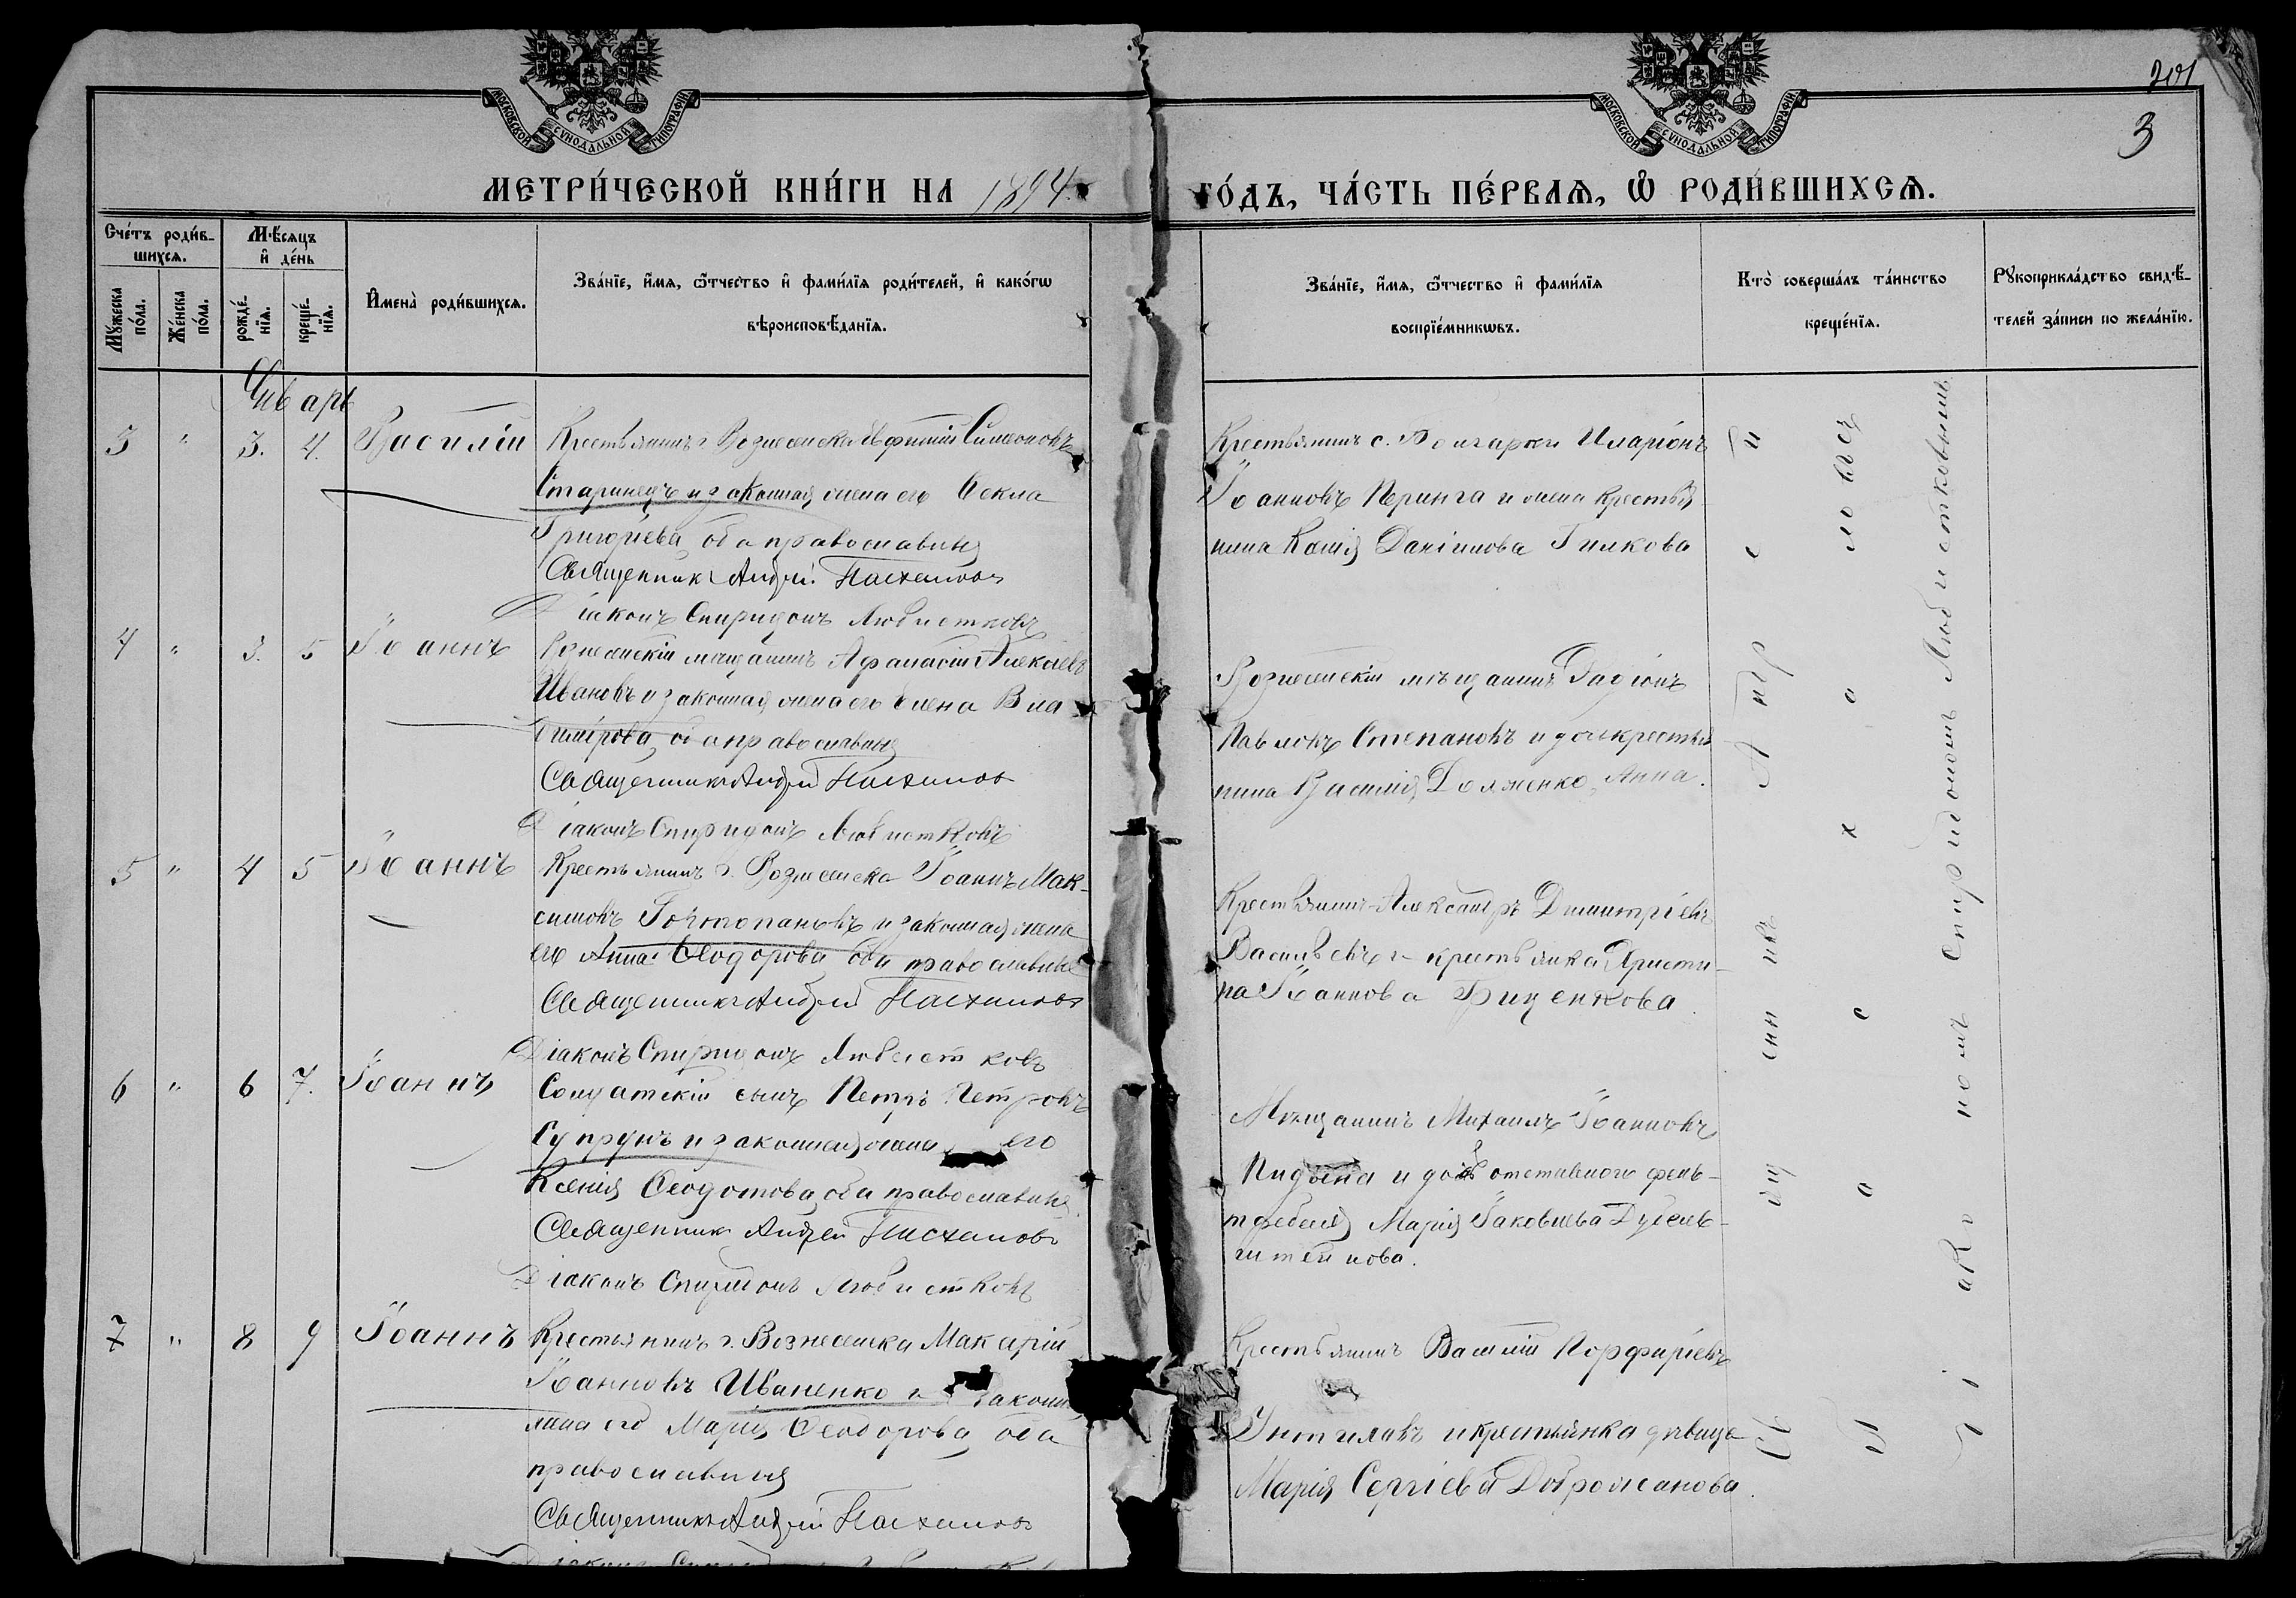 МОСКОВСКОЙ СѴНОДАЛЬНОЙ ТИПОГРАФІИ
МОСКОВСКОЙ СѴНОДАЛЬНОЙ ТИПОГРАФІИ
201
3
МЕТРИ́ЧЕСКОЙ КНИ́ГИ НА 1894 ГО́ДЪ, ЧА́СТЬ ПЕ́РВАѦ, Ѡ РОДИ́ВШИХСѦ.
Сче́тъ роди́в-
шихсѧ.
Мꙋжеска по́ла.
Же́нска по́ла.
Мѣ́сѧцъ и҆ де́нь
рожде́-нїѧ.
креще́-нїѧ.
И҆мена̀ роди́вшихсѧ.
Зва́нїе, и҆́мѧ, ѻ҆́тчество и҆ фами́лїѧ роди́телей, и҆ како́гѡ
вѣроисповѣ́данїѧ.
Зва́нїе, и҆́мѧ, ѻ҆́тчество и҆ фами́лїѧ
воспрїе́мникѡвъ.
Кто̀ соверша́лъ та́инство
креще́нїѧ.
Рꙋкоприкла́дство свидѣ́-
телей за́писи по жела́нїю.
Январь
3 " 3. 4. Василій
Крестьянинъ г. Вознесенска Евфимій Симеоновъ
Старинецъ и законная жена его Фекла
Григоріева, оба православныя
Священникъ Андрей Пасхаловъ
Діаконъ Спиридонъ Любистковъ
Крестьянинъ с. Болгарки Иларіонъ
Іоанновъ Перинга и жена крестья
нина Ксенія Даніилова Гилкова
4 " 3. 5 Іоаннъ
Вознесенскій мещанинъ Афанасій Алексіевъ
Ивановъ и законная жена его Елена Вла
димірова, оба православныя
Священникъ Андрей Пасхаловъ
Діаконъ Спиридонъ Любистковъ
Вознесенскій мѣщанинъ Радіонъ
Павловъ Степановъ и дочь крестья
нина Василія Долженко, Анна.
5 " 4 5 Іоаннъ
Крестьянинъ г. Вознесенска Іоаннъ Мак-
симовъ и законная жена
его Анна Феодорова оба православныя
Священникъ Андрей Пасхаловъ
Діаконъ Спиридонъ Любистковъ
Крестьянинъ Александръ Димитріевъ
Васильевъ и крестьянка Христи-
на Іоаннова Фищенкова
6 " 6 7. Іоаннъ
Солдатскій сынъ Петръ Петровъ
Супрунъ и законная жена его
Ксенія Феодотова, оба православныя
Священникъ Андрей Пасхаловъ
Діаконъ Спиридонъ Любистковъ
Мѣщанинъ Михаилъ Іоанновъ
и дочь отставного фель-
дфебеля Марія Іаковлева
7 " 8 9 Іоаннъ
Крестьянинъ г. Вознесенска Макарій
Іоанновъ Иваненко и законн.
жена его Марія Феодорова, оба
православныя
Священникъ Андрей Пасхаловъ
Крестьянинъ Василій Порфиріевъ
и крестьянка дѣвица
Марія Сергіева Доброжанова.
Священникъ Андрей
Пасхаловъ съ
Діакономъ Спиридономъ Любистковымъ